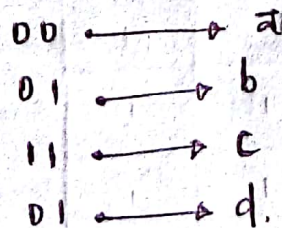 00 → a
01 → b
11 → c
01 → d.